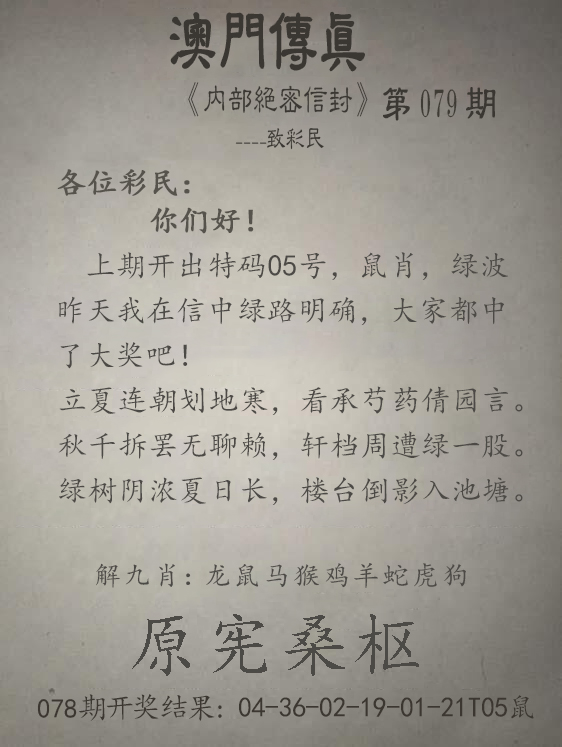 澳門傳真
《内部絕密信封》第079期
----致彩民
各位彩民：
你们好！
上期开出特码05号，鼠肖，绿波
昨天我在信中绿路明确，大家都中
了大奖吧！
立夏连朝划地寒，看承芍药倩园言。
秋千拆罢无聊赖，轩档周遭绿一股。
绿树阴浓夏日长，楼台倒影入池塘。
解九肖：龙鼠马猴鸡羊蛇虎狗
原宪桑枢
078期开奖结果：04-36-02-19-01-21T05鼠